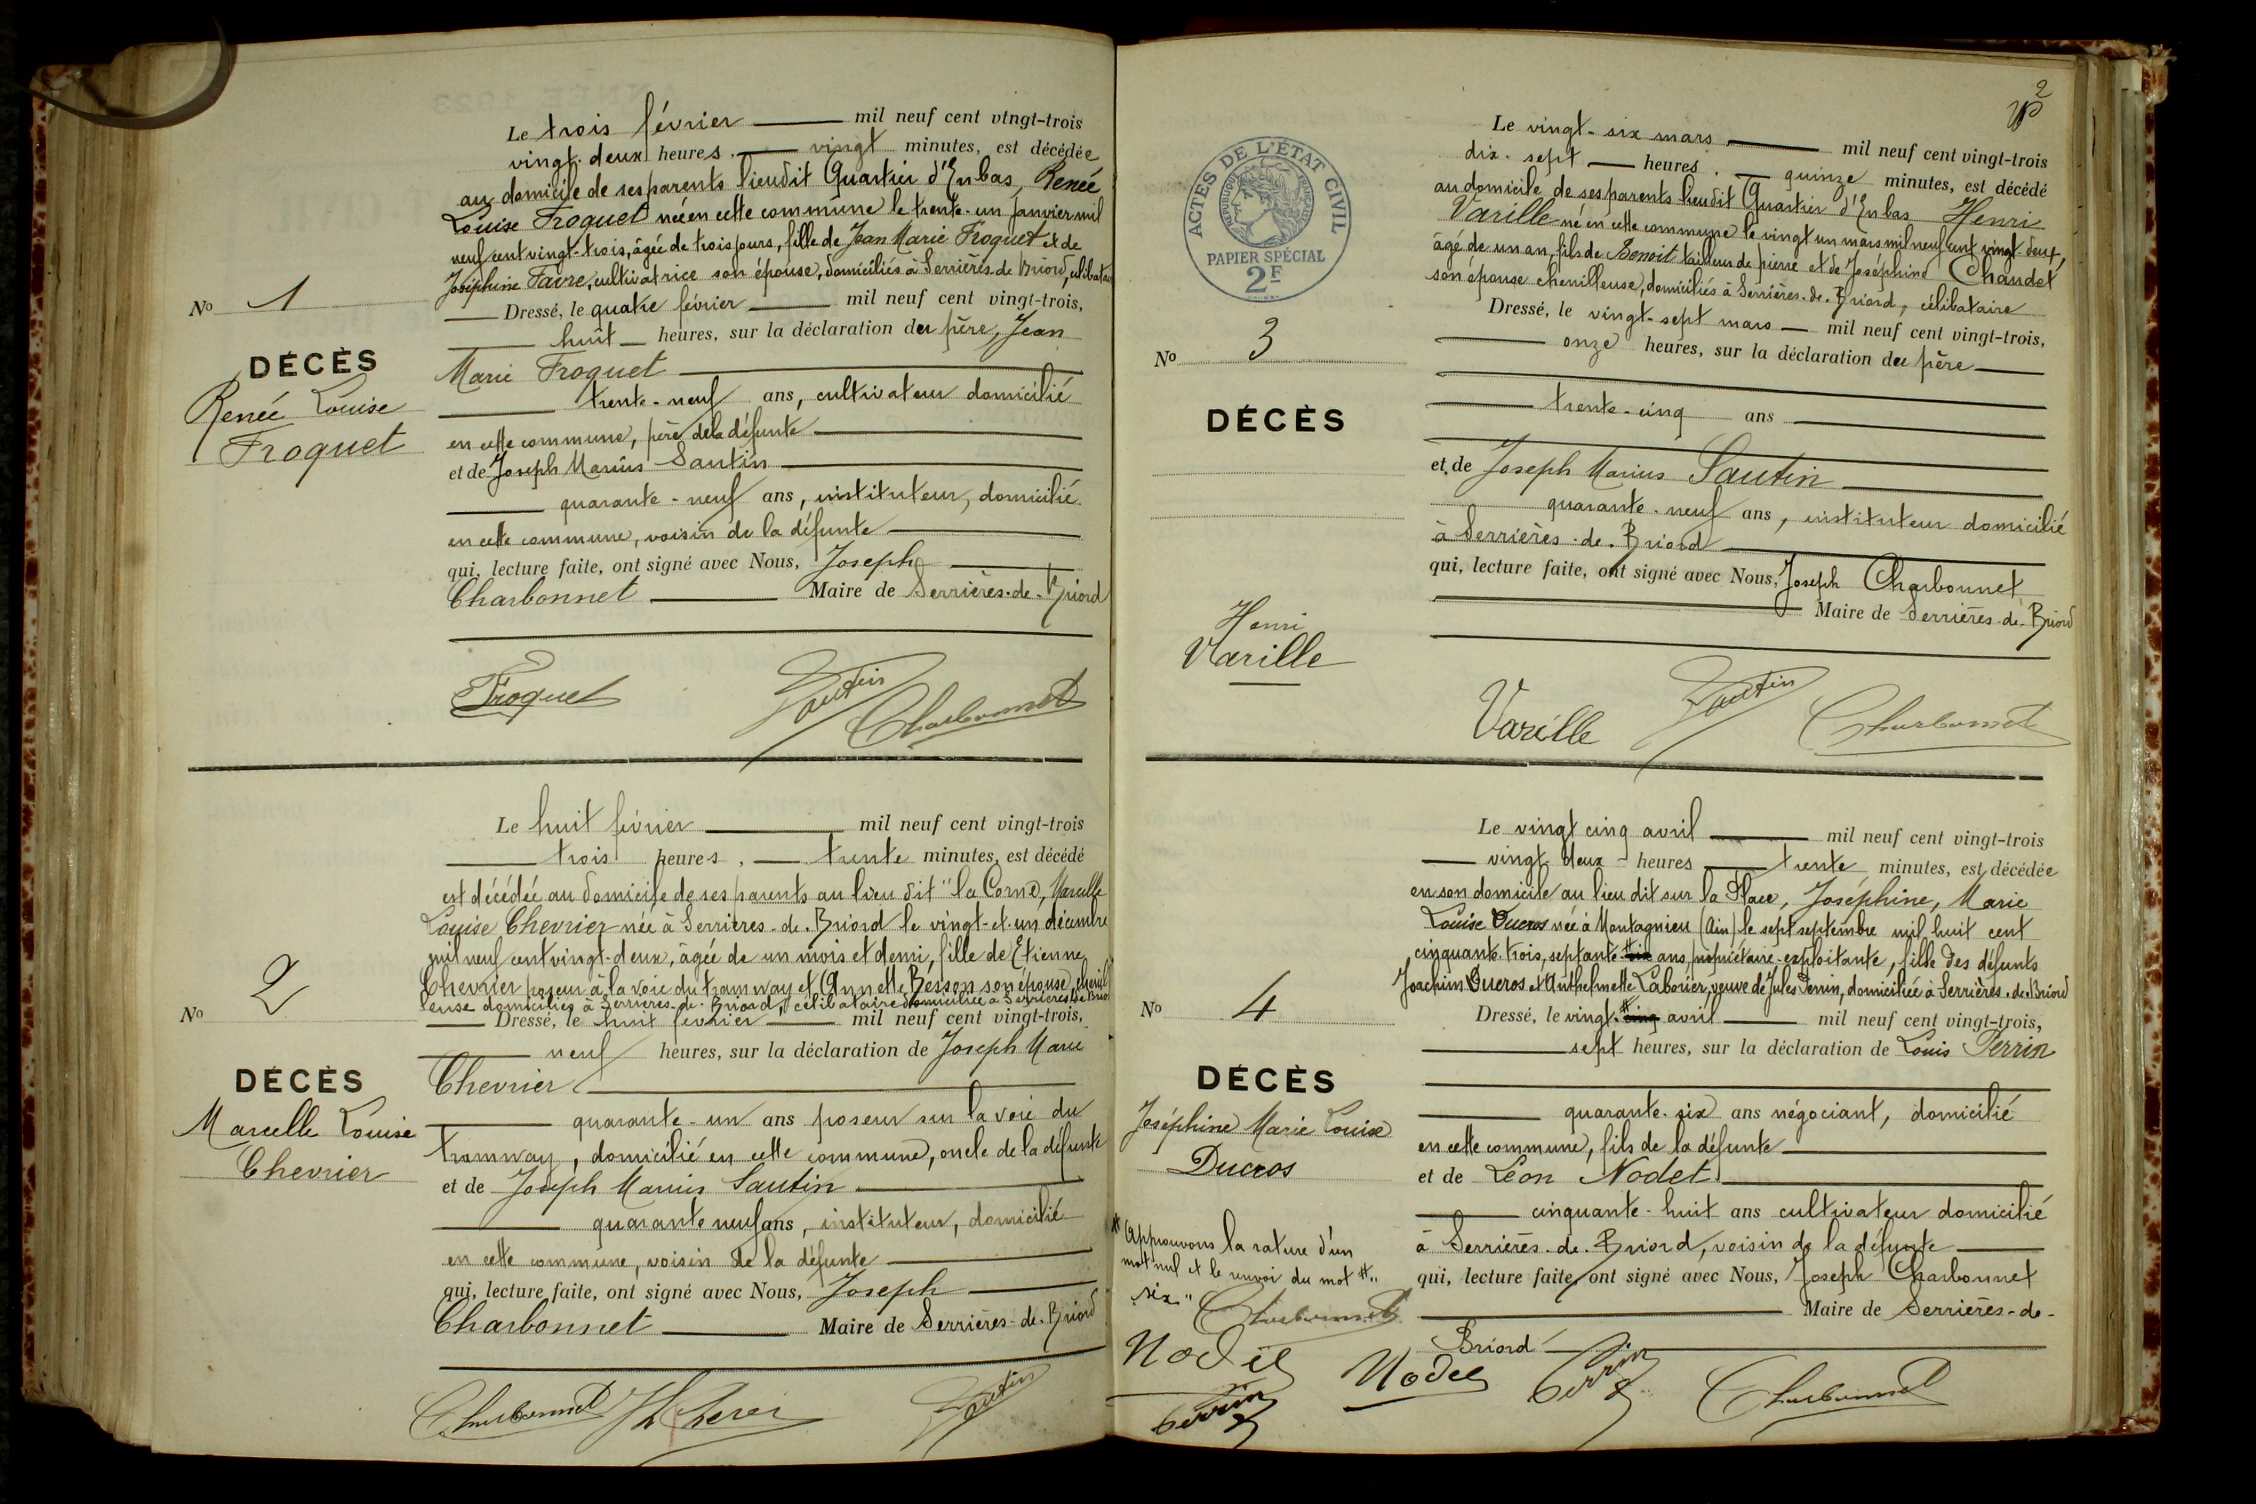 Le trois février mil neuf cent vingt-trois
vingt-deux heures, vingt minutes, est décédée
au domicile de ses parents lieudit Quartier d'Enbas, Renée
Louise Froquet née en cette commune le trente-un janvier mil
neuf cent vingt-trois, âgée de trois jours, fille de Jean Marie Froquet et de
Joséphine Favre, cultivatrice son épouse, domiciliés à Serrières de Briord, célibataire
No 1
Dressé, le quatre février mil neuf cent vingt-trois,
huit heures, sur la déclaration du père, Jean
DÉCÈS
Marie Froquet
Renée Louise
Froquet
trente-neuf ans, cultivateur domicilié
en cette commune, père de la défunte
et de Joseph Marius Sautin
quarante-neuf ans, instituteur, domicilié
en cette commune, voisin de la défunte
qui, lecture faite, ont signé avec Nous, Joseph
Charbonnet Maire de Serrières-de-Briord
Froquet Sautin Charbonnet
Le huit février mil neuf cent vingt-trois
trois heures, trente minutes, est décédé
est décédée au domicile de ses parents au lieu dit "la Corne, Marcelle
Louise Chevrier née à Serrières-de-Briord le vingt-et-un décembre
mil neuf cent vingt-deux, âgée de un mois et demi, fille de Etienne
Chevrier poseur à la voie du tramway et Annette Besson son épouse, chenil
leuse domiciliés à Serrières-de-Briord, célibataire domiciliée à Serrières de Briord
No 2
Dressé, le huit février mil neuf cent vingt-trois,
neuf heures, sur la déclaration de Joseph Marie
DÉCÈS
Chevrier
Marcelle Louise
Chevrier
quarante-un ans poseur sur la voie du
tramway, domicilié en cette commune, oncle de la défunte
et de Joseph Marius Sautin
quarante neuf ans, instituteur, domicilié
en cette commune, voisin de la défunte
qui, lecture faite, ont signé avec Nous, Joseph
Charbonnet Maire de Serrières-de-Briord
Charbonnet Sautin
2
ACTES DE L'ÉTAT CIVIL
RÉPUBLIQUE FRANÇAISE
PAPIER SPÉCIAL
2F
Le vingt-six mars mil neuf cent vingt-trois
dix-sept heures, quinze minutes, est décédé
au domicile de ses parents lieudit Quartier d'Enbas Henri
Varille né en cette commune le vingt un mars mil neuf cent vingt-deux,
âgé de un an, fils de Benoit tailleur de pierre et de Joséphine Chaudet
son épouse chenilleuse, domiciliés à Serrières-de-Briord, célibataire
No 3
Dressé, le vingt-sept mars mil neuf cent vingt-trois,
onze heures, sur la déclaration du père
DÉCÈS
trente-cinq ans
et de Joseph Marius Sautin
quarante-neuf ans, instituteur domicilié
à Serrières-de-Briord
qui, lecture faite, ont signé avec Nous, Joseph Charbonnet
Maire de Serrières-de-Briord
Henri
Varille
Varille Sautin Charbonnet
Le vingt cinq avril mil neuf cent vingt-trois
vingt-deux heures trente minutes, est décédée
en son domicile au lieu dit sur la Place, Joséphine, Marie
Louise Ducros née à Montagnieu (Ain) le sept septembre mil huit cent
cinquante-trois, septante-six ans, propriétaire-exploitante, fille des défunts
Joachim Ducros et Anthelmette Laborier, veuve de Jules Perrin, domiciliée à Serrières-de-Briord
No 4
Dressé, le vingt-cinq avril mil neuf cent vingt-trois,
sept heures, sur la déclaration de Louis Perrin
DÉCÈS
Joséphine Marie Louise
Ducros
quarante-six ans négociant, domicilié
en cette commune, fils de la défunte
et de Léon Nodet
cinquante-huit ans cultivateur domicilié
à Serrières-de-Briord, voisin de la défunte
qui, lecture faite, ont signé avec Nous, Joseph Charbonnet
Maire de Serrières-de-
Briord
# Approuvons la rature d'un
mot nul et le renvoi du mot #"
"six" Charbonnet
Nodet Perrin
Nodet Perrin Charbonnet